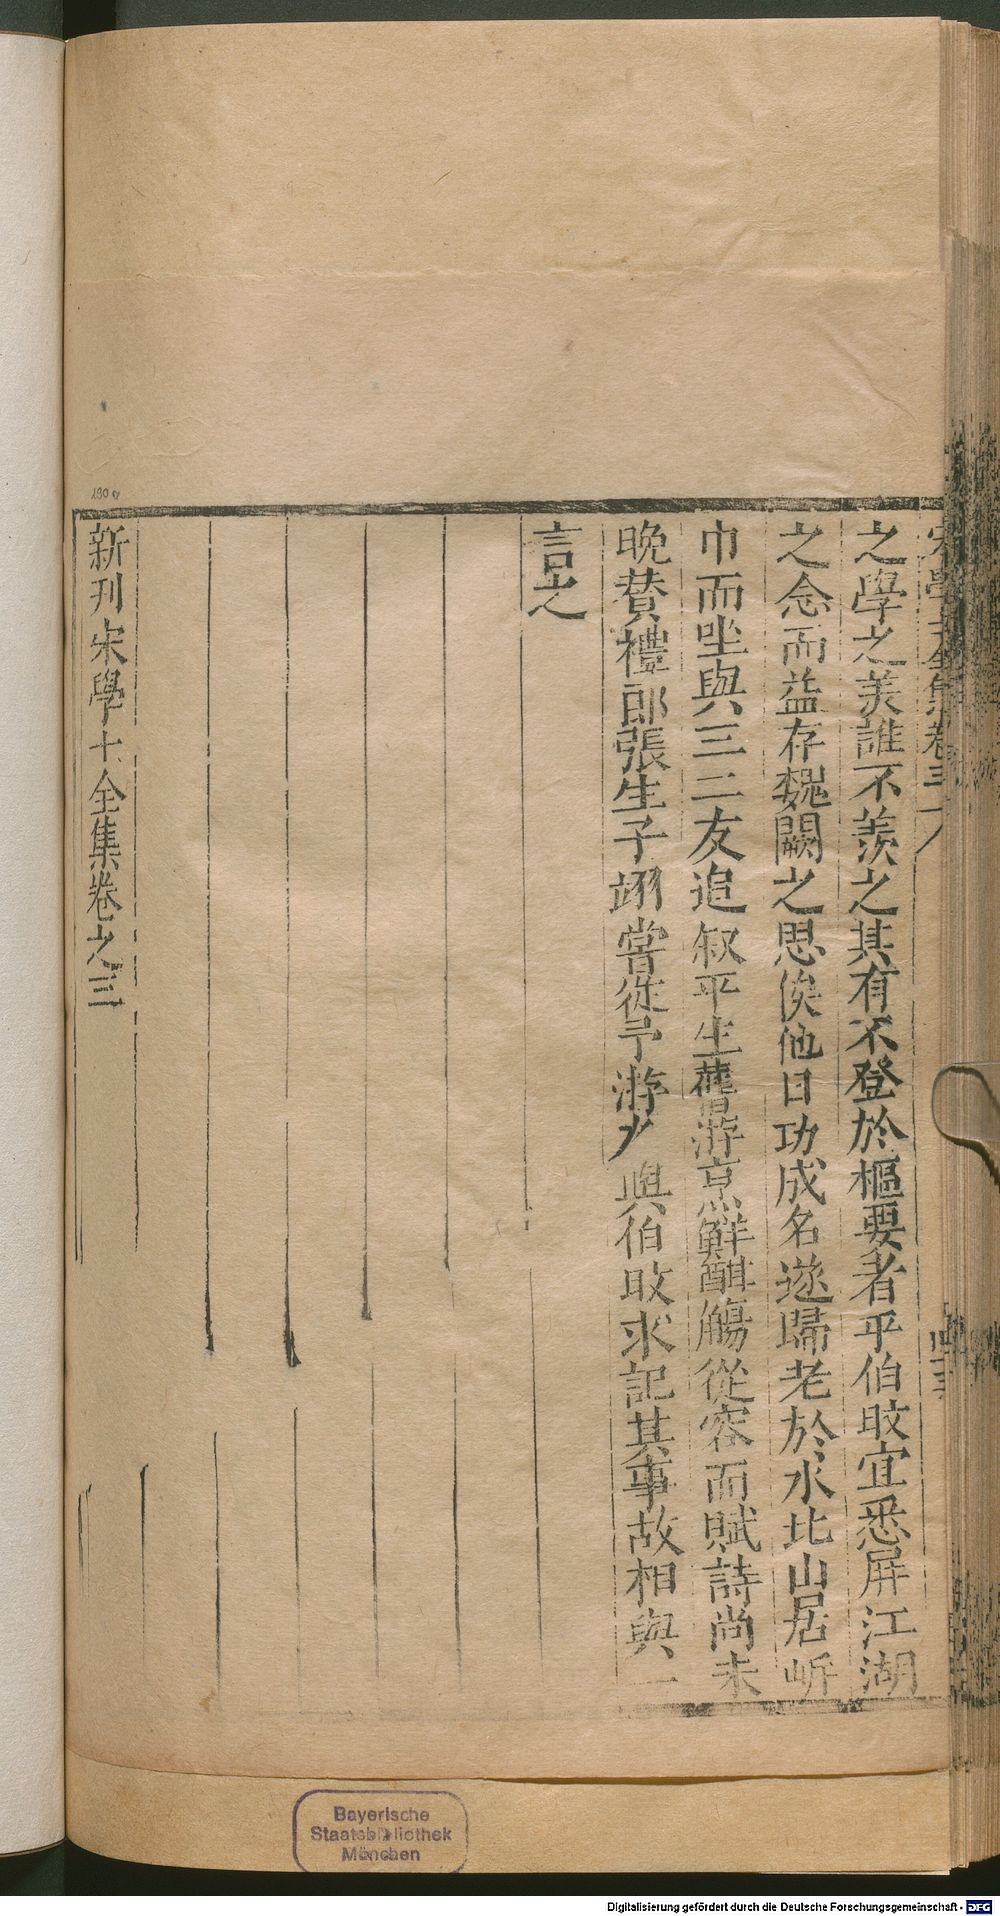 之學之美誰不羨之其有不登於樞要者乎伯㫤宜悉屏江湖
之念而益存魏闕之思俟他日功成名遂歸老於水北山居岸
巾而坐與三二友追叙平生舊游烹鮮酣觴從容而賦詩尚未
晚賛禮郎張生子翊嘗從予游又與伯㫤求記其事故相與一
言之
新刊宋學士全集卷之三
190 v
Bayerische
Staatsbibliothek
München
Digitalisierung gefördert durch die Deutsche Forschungsgemeinschaft - DFG